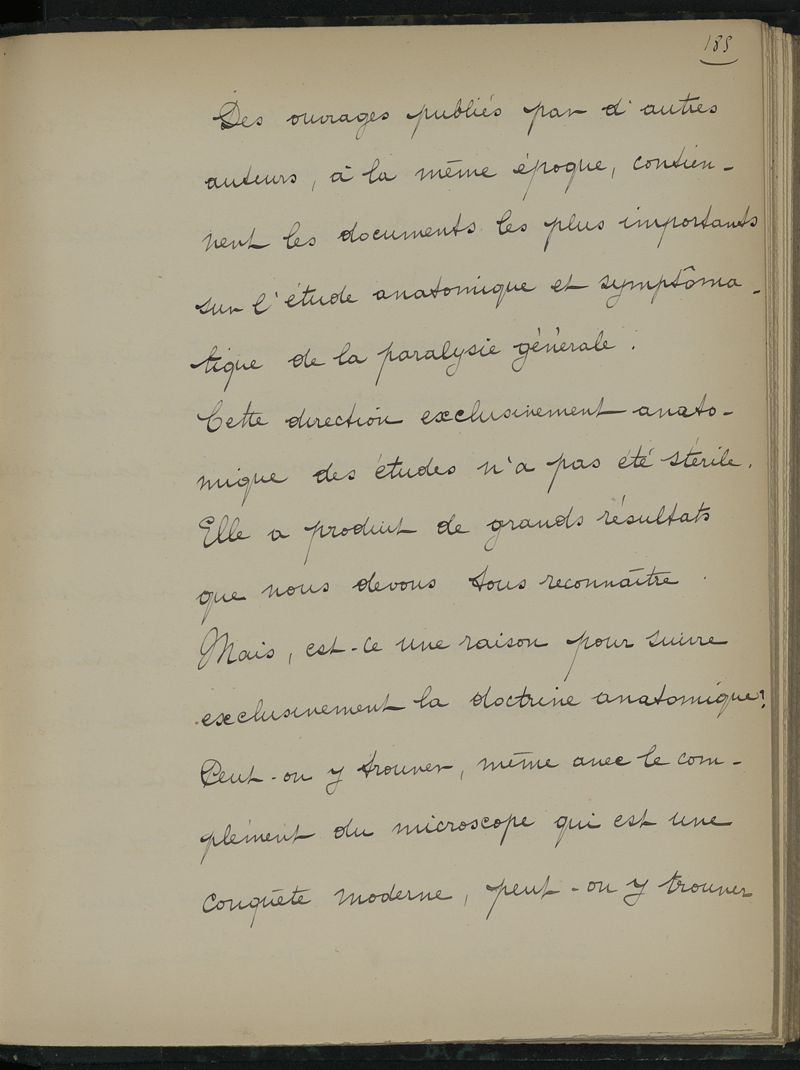 185
Des ouvrages publiés par d'autres
auteurs, à la même époque, contien-
nent les documents les plus importants
sur l'étude anatomique et symptôma-
tique de la paralysie générale.
Cette direction exclusivement anato-
mique des études n'a pas été stérile.
Elle a produit de grands résultats
que nous devons tous reconnaître.
Mais, est-ce une raison pour suivre
exclusivement la doctrine anatomique?
Peut-on y trouver, même avec le com-
plément du microscope qui est une
conquête moderne, peut-on y trouver